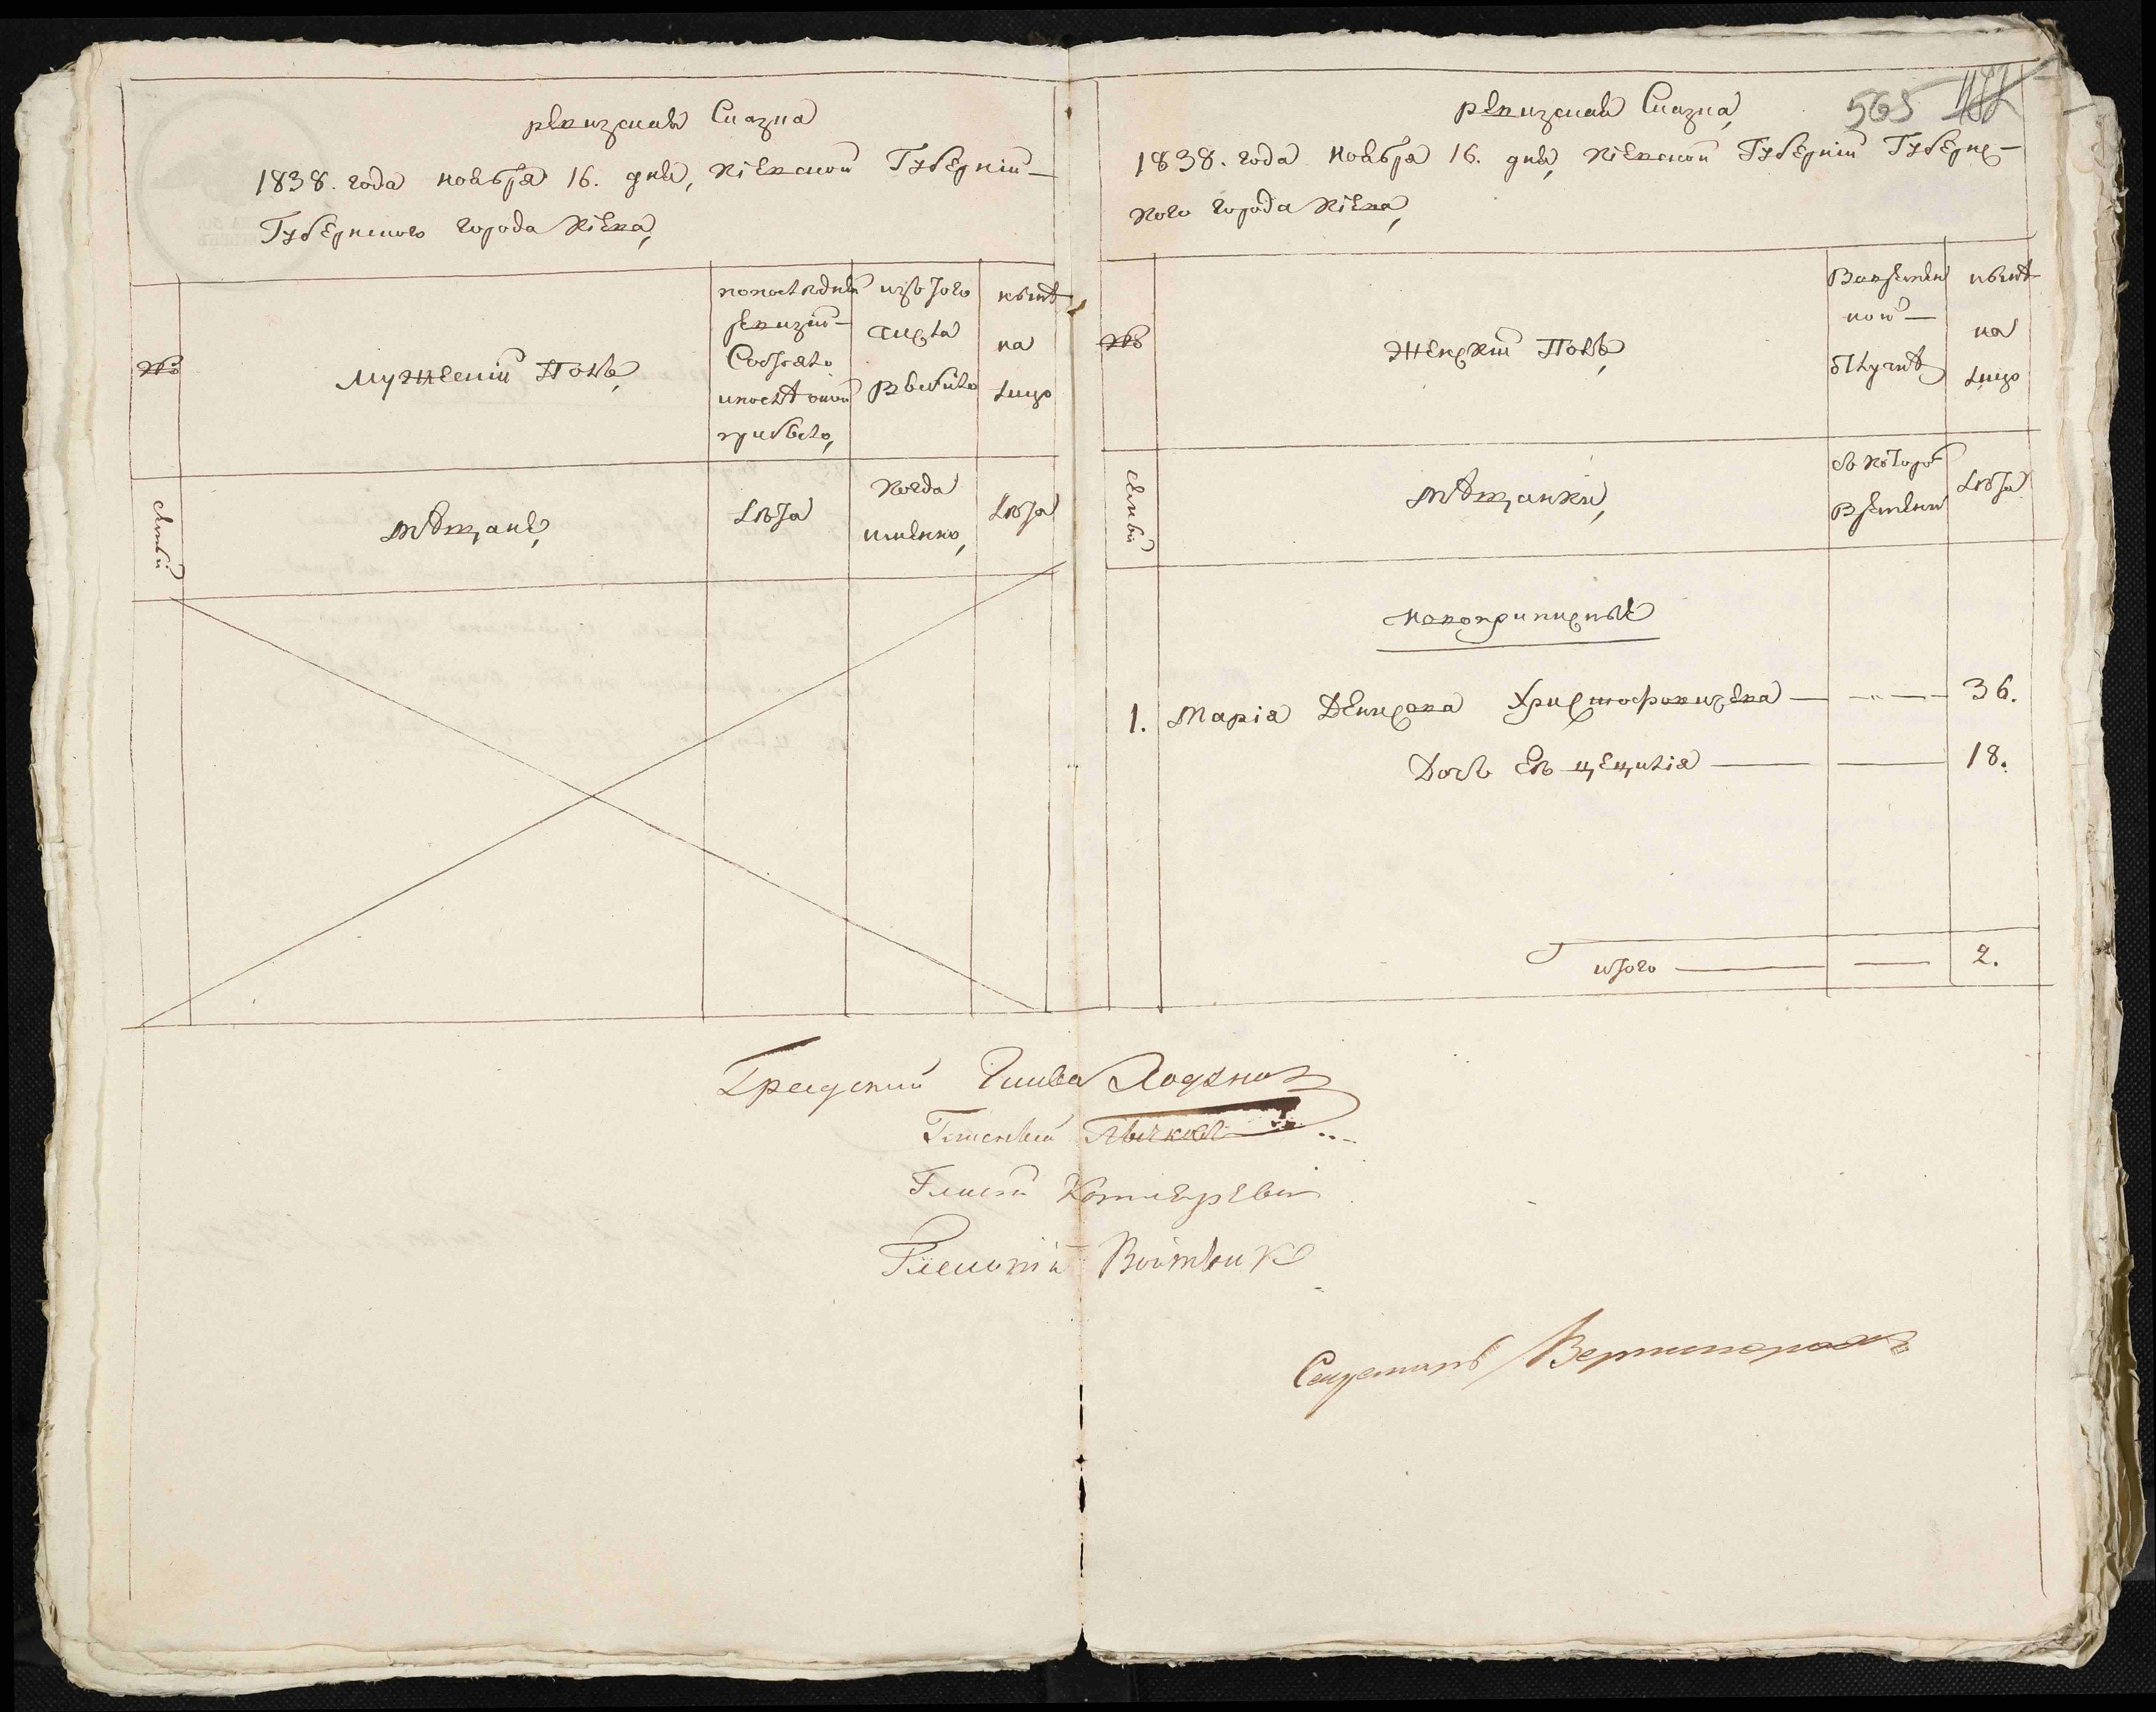 ревизская Сказка
1838. года ноября 16. дня, Кіевской Губерніи
Губернского города Кіева,
№
семьи
Мужескій Полъ,
по последней
ревизіи
Состояло
и после оной
прибыло,
изъ того
числа
Выбыло
ныне
на
лицо
мѣщане,
лѣта
Когда
именно,
лѣта
565
ревизская Сказка,
1838. года ноября 16. дня, Кіевской Губерніи Губернс-
кого города Кіева,
№
семьи
Женскій Полъ,
Во времен
ной
отлучкѣ
нынѣ
на
лицо
мѣщанки,
съ которо
Времени
лѣта
новоприписные
1. Марія Денисова Христофоровичева — — 36.
Дочь Ея Цецилія — — 18.
итого — — 2.
Градский Глава Ходунов
Гласный
Гласный Котляревскій
Гласный Войтенко
Секретарь